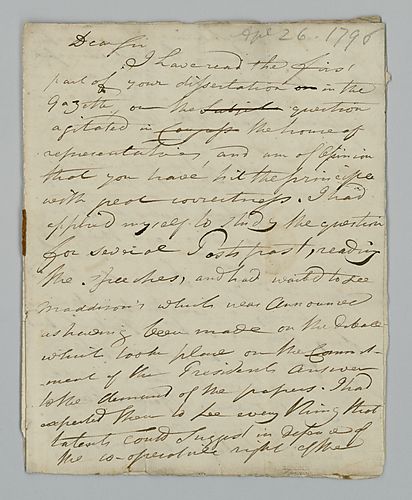 Apl 26. 1796
Dear Sir
I have read the first
part of your dissertation on in the
gazette, on the Subject question
agitated in Congress the house of
representatives, and am of Opinion
that you have hit the principle
with great correctness. I had
applied myself to study the question
for several Posts past, reading
the speeches, and had waited to see
Maddison's which was announced
as having been made on the debate
which took place on the Commit-
ment of the Presidents answer
to the demand of the papers. I had
expected then to see every thing that
talents could suggest in defence of
the co-operative right of the